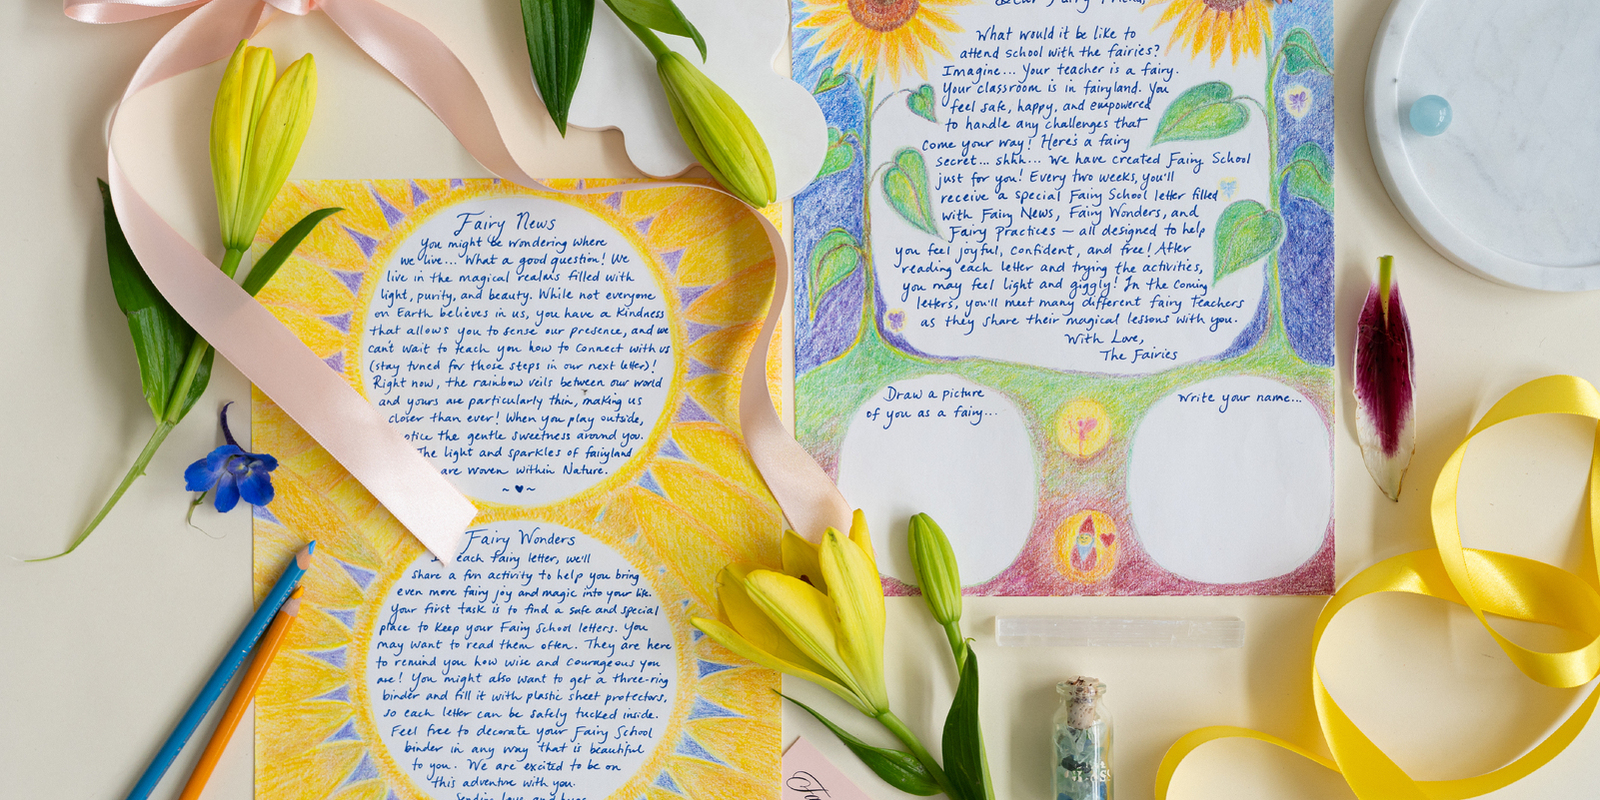 Fairy News
You might be wondering where
we live... What a good question! We
live in the magical realms filled with
light, purity, and beauty. While not everyone
on Earth believes in us, you have a kindness
that allows you to sense our presence, and we
can't wait to teach you how to connect with us
(stay tuned for those steps in our next letter)!
Right now, the rainbow veils between our world
and yours are particularly thin, making us
closer than ever! When you play outside,
notice the gentle sweetness around you.
The light and sparkles of fairyland
are woven within Nature.
~♥~
Fairy Wonders
each Fairy letter, we'll
share a fun activity to help you bring
even more fairy joy and magic into your life.
Your first task is to find a safe and special
place to keep your Fairy School letters. You
may want to read them often. They are here
to remind you how wise and courageous you
are! You might also want to get a three-ring
binder and fill it with plastic sheet protectors,
so each letter can be safely tucked inside.
Feel free to decorate your Fairy School
binder in any way that is beautiful
to you. We are excited to be on
this adventure with you.
Sending love and hugs
Dear Fairy Friend,
What would it be like to
attend school with the fairies?
Imagine... Your teacher is a fairy.
Your classroom is in fairyland. You
feel safe, happy, and empowered
to handle any challenges that
come your way! Here's a fairy
secret... shhh... We have created Fairy School
just for you! Every two weeks, you'll
receive a special Fairy School letter filled
with Fairy News, Fairy Wonders, and
Fairy Practices — all designed to help
you feel joyful, confident, and free! After
reading each letter and trying the activities,
you may feel light and giggly! In the coming
letters, you'll meet many different fairy teachers
as they share their magical lessons with you.
With Love,
The Fairies
Draw a picture
of you as a fairy...
Write your name...